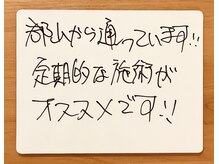 郡山から通っています!!
定期的な施術が
オススメです!!